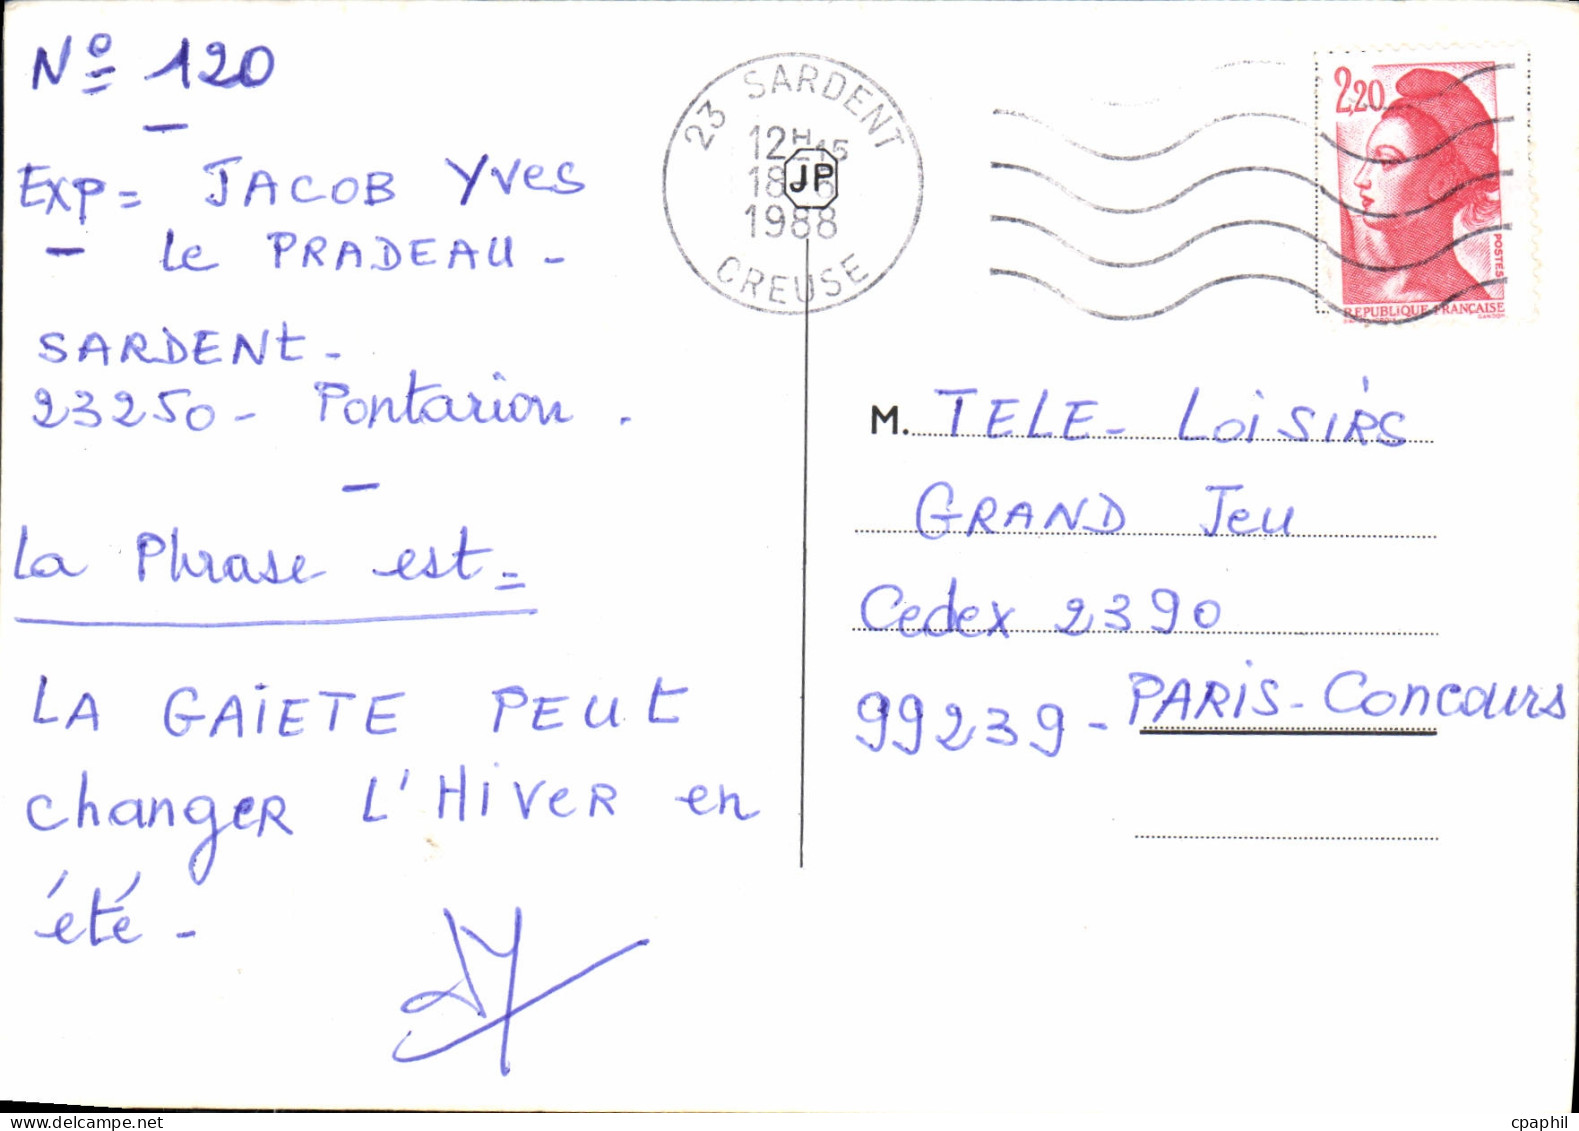 Nº 120
Exp = JACOB Yves
- le PRADEAU -
SARDENt -
23250 - Pontarion .
La Phrase est =
LA GAiETE PEUt
changER L'HiVeR en
été -
23 SARDENT
12H15
1988
CREUSE
JP
2,20
POSTES
REPUBLIQUE FRANÇAISE
M. TELE - LoiSiRS
GRAND Jeu
Cedex 2390
99239 - PARiS - Concours
cpaphil